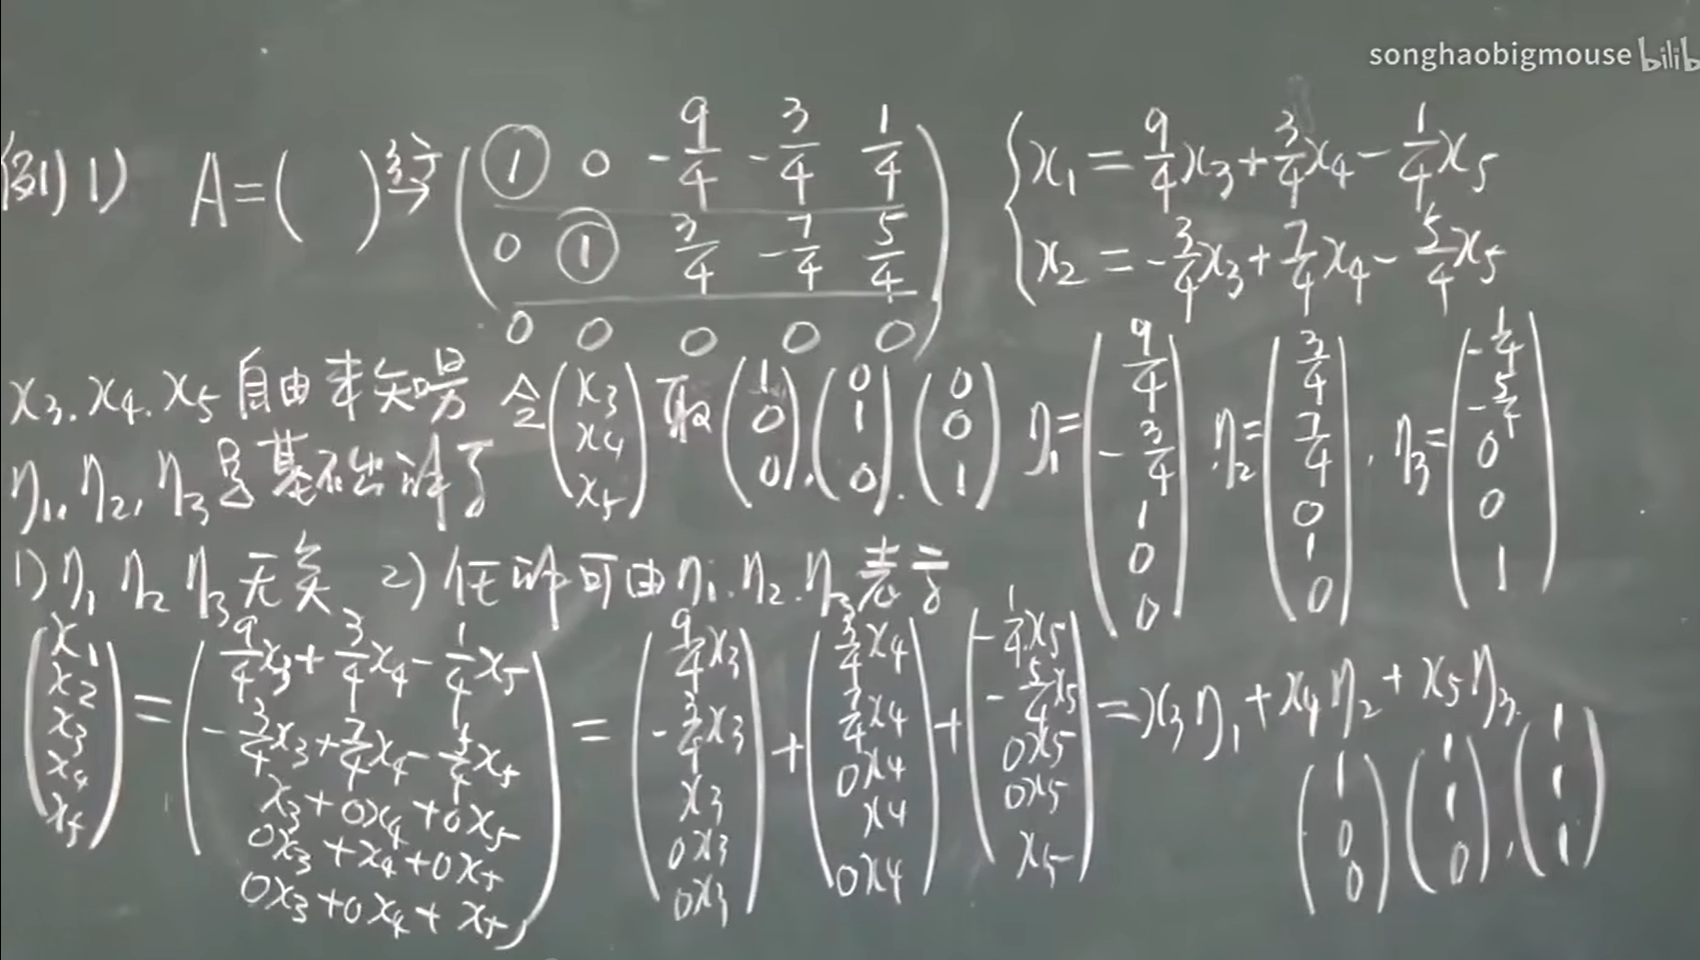 songhaobigmouse bilib
例1) 1) A=( ) 行→ (1 0 -9/4 -3/4 1/4
0 1 3/4 -7/4 5/4
0 0 0 0 0)
{x₁ = 9/4x₃ + 3/4x₄ - 1/4x₅
x₂ = -3/4x₃ + 7/4x₄ - 5/4x₅
x₃.x₄.x₅ 自由未知量 令(x₃ x₄ x₅) 取(1 0 0),(0 1 0).(0 0 1) η₁=(9/4 -3/4 1 0 0) η₂=(3/4 7/4 0 1 0), η₃=(-1/4 -5/4 0 0 1)
η₁, η₂, η₃是基础解系
1) η₁ η₂ η₃无关 2) 任一解可由η₁.η₂.η₃表示
(x₁ x₂ x₃ x₄ x₅) = (9/4x₃+3/4x₄-1/4x₅
-3/4x₃+7/4x₄-5/4x₅
x₃+0x₄+0x₅
0x₃+x₄+0x₅
0x₃+0x₄+x₅)
= (9/4x₃ -3/4x₃ x₃ 0x₃ 0x₃) + (3/4x₄ 7/4x₄ 0x₄ x₄ 0x₄) + (-1/4x₅ -5/4x₅ 0x₅ 0x₅ x₅) = x₃η₁+x₄η₂+x₅η₃
(1 0 0) (1 1 0),(1 1 1)